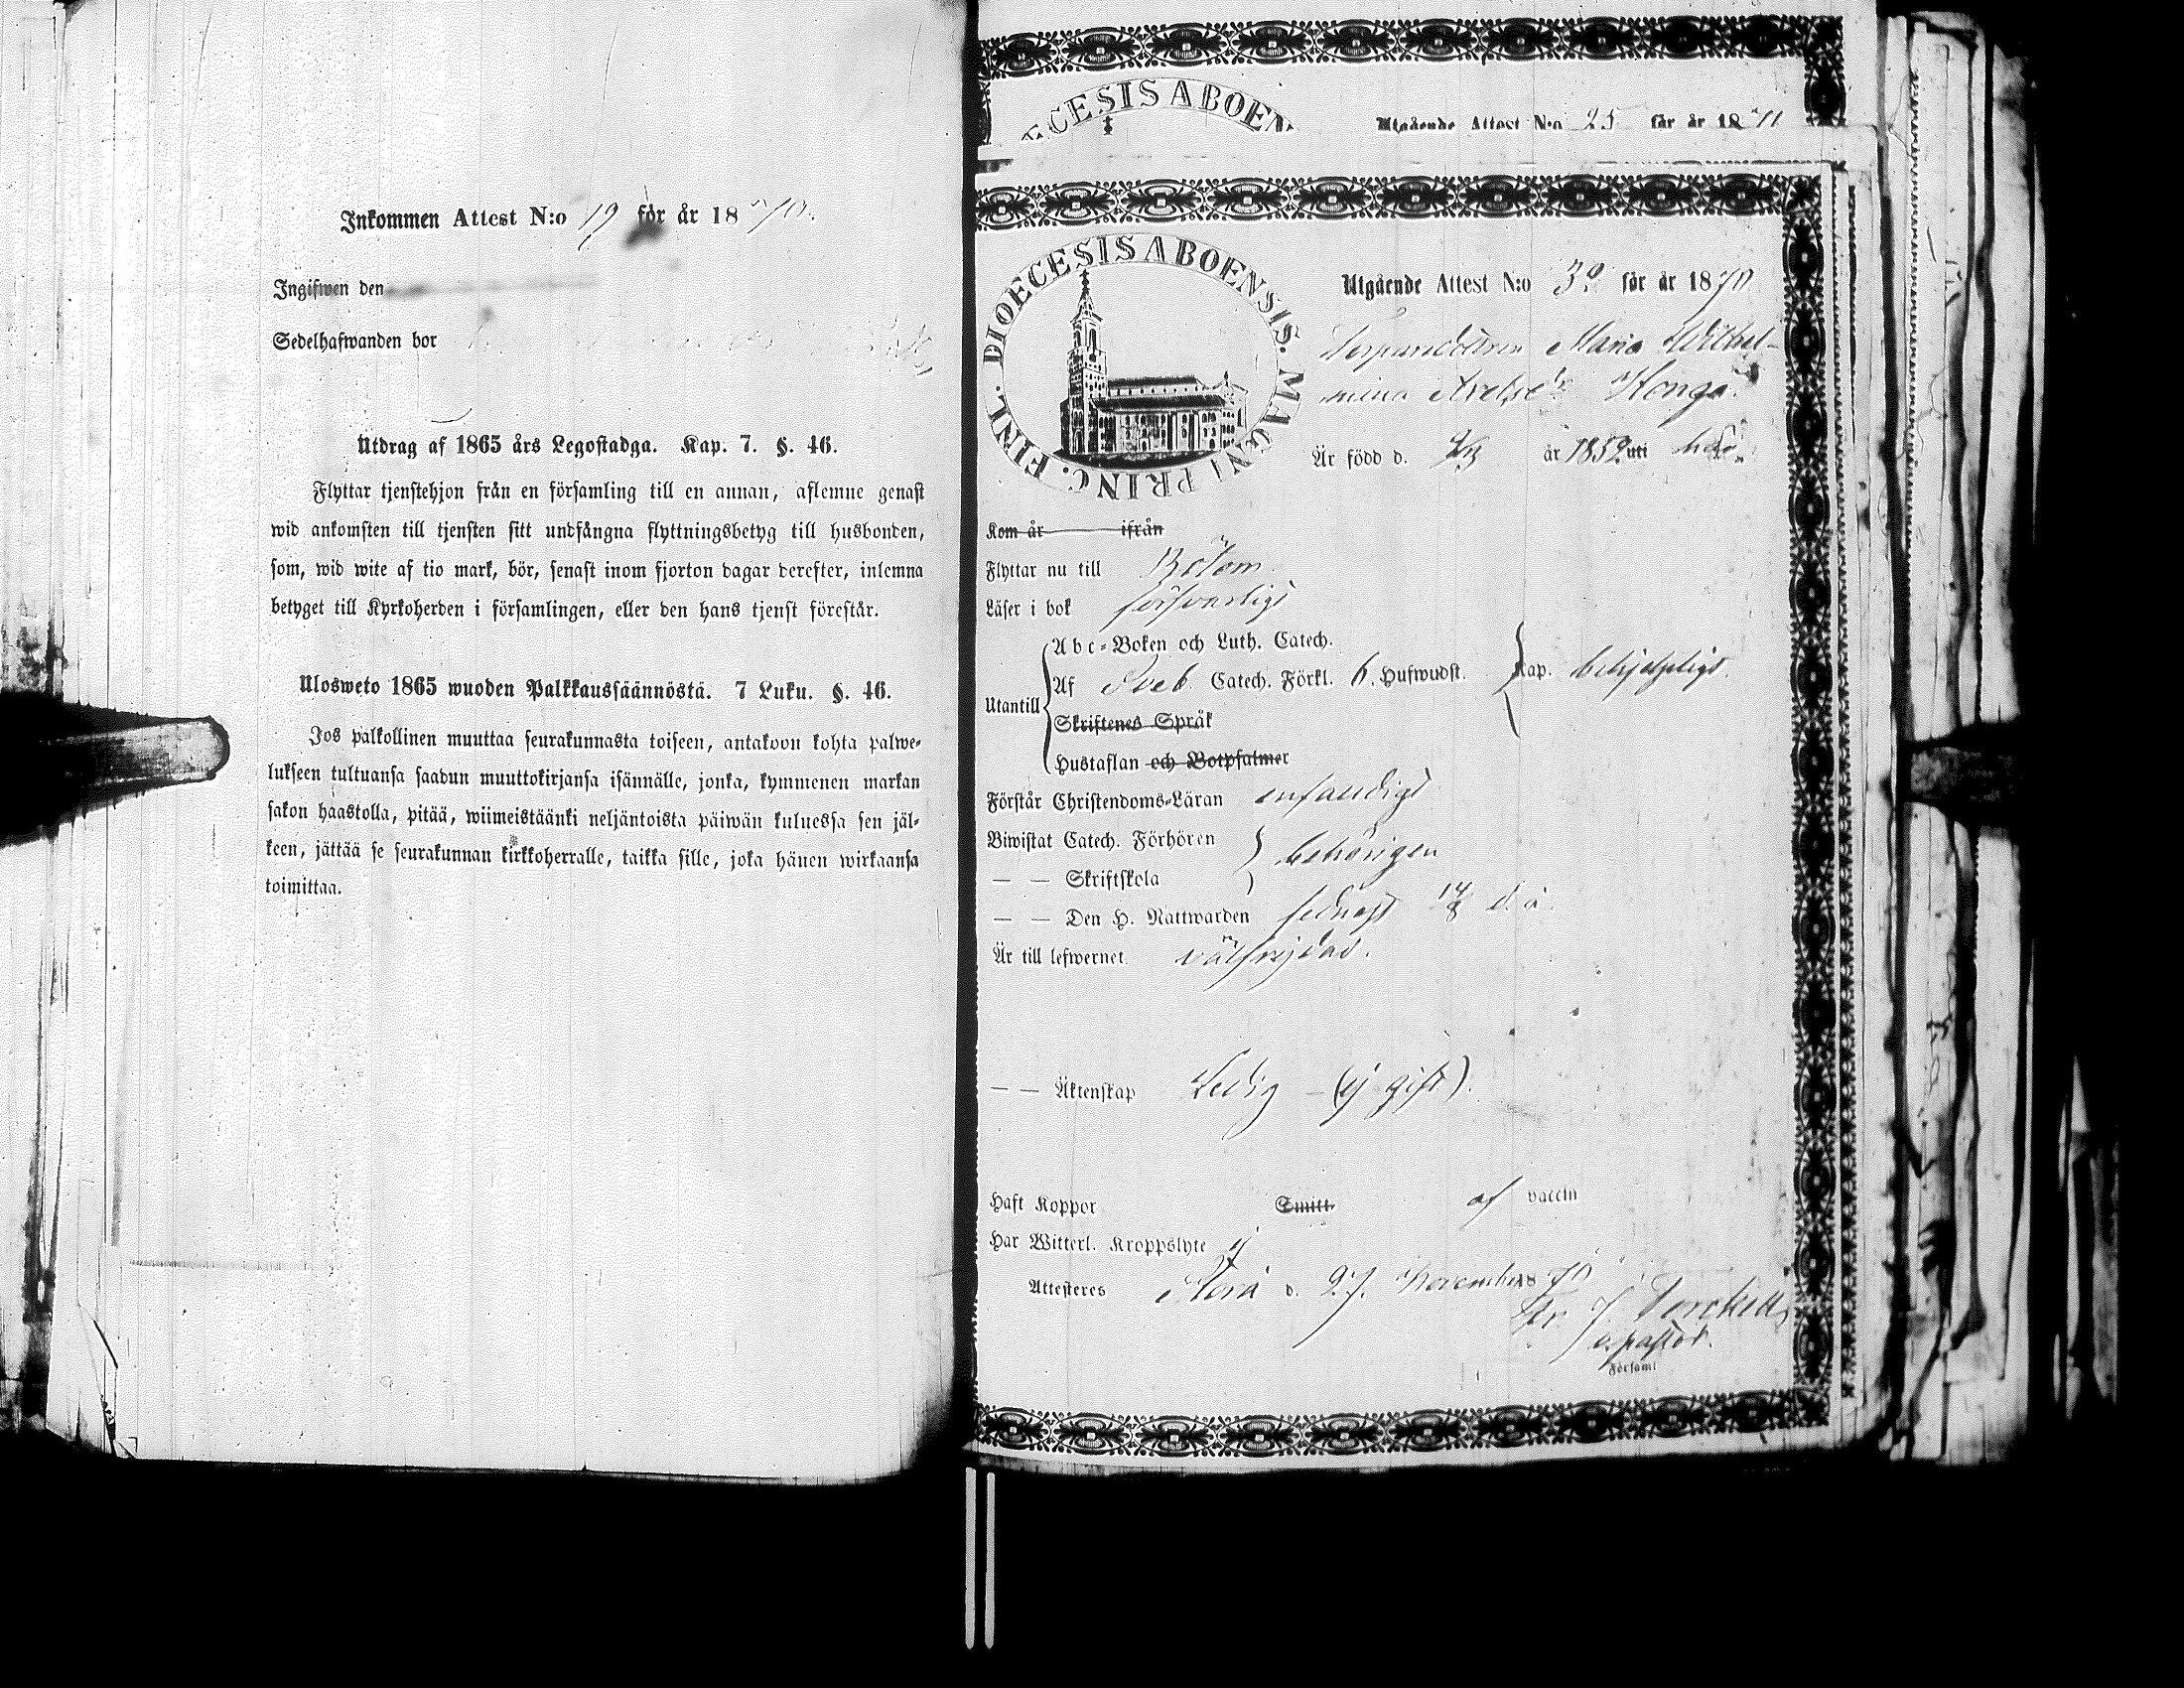 Inkommen Attest N:o 19 för år 1870.
Ingifwen den
Sedelhafwanden bor
Utdrag af 1865 års Legostadga. Kap. 7. §. 46.
Flyttar tjenstehjon från en församling till en annan, aflemne genast
wid ankomsten till tjensten sitt undfångna flyttningsbetyg till husbonden,
som, wid wite af tio mark, bör, senast inom fjorton dagar derefter, inlemna
betyget till Kyrkoherden i församlingen, eller den hans tjenst förestår.
Ulosweto 1865 wuoden Palkkaussäännöstä. 7 Luku. §. 46.
Jos palkollinen muuttaa seurakunnasta toiseen, antakoon kohta palwe-
lukseen tultuansa saadun muuttokirjansa isännälle, jonka, kymmenen markan
sakon haastolla, pitää, wiimeistäänki neljäntoista päiwän kuluessa sen jäl-
keen, jättää se seurakunnan kirkkoherralle, taikka sille, joka hänen wirkaansa
toimittaa.
ECESIS ABOEN
Utgående Attest N:o 25 för år 18
DIOECESIS ABOENSIS. MAGNI PRINC. FINL.
Utgående Attest N:o 30 för år 1870
Maria Wilhel-
mina Honga.
Är född d. år 1852 uti
Kom år ifrån
Flyttar nu till Bötom.
Läser i bok försvarligt
Abc-Boken och Luth. Catech.
Utantill Af Sveb. Catech. Förkl. 6. Hufwudst. Kap. behjelpligt.
Skriftenes Språk
Hustaflan och Botpsalmer
Förstår Christendoms-Läran enfaldigt
Biwistat Catech. Förhören behörigen
— — Skriftskola
— — Den H. Nattwarden sednast 14/8 d. å.
Är till lefwernet välfrejdad.
— — Äktenskap Ledig – (ej gift).
Haft Koppor Smitt af vaccin
Har Witterl. Kroppslyte ej
Attesteres d. 27. November 1870
J.
v. pastor.
Församl